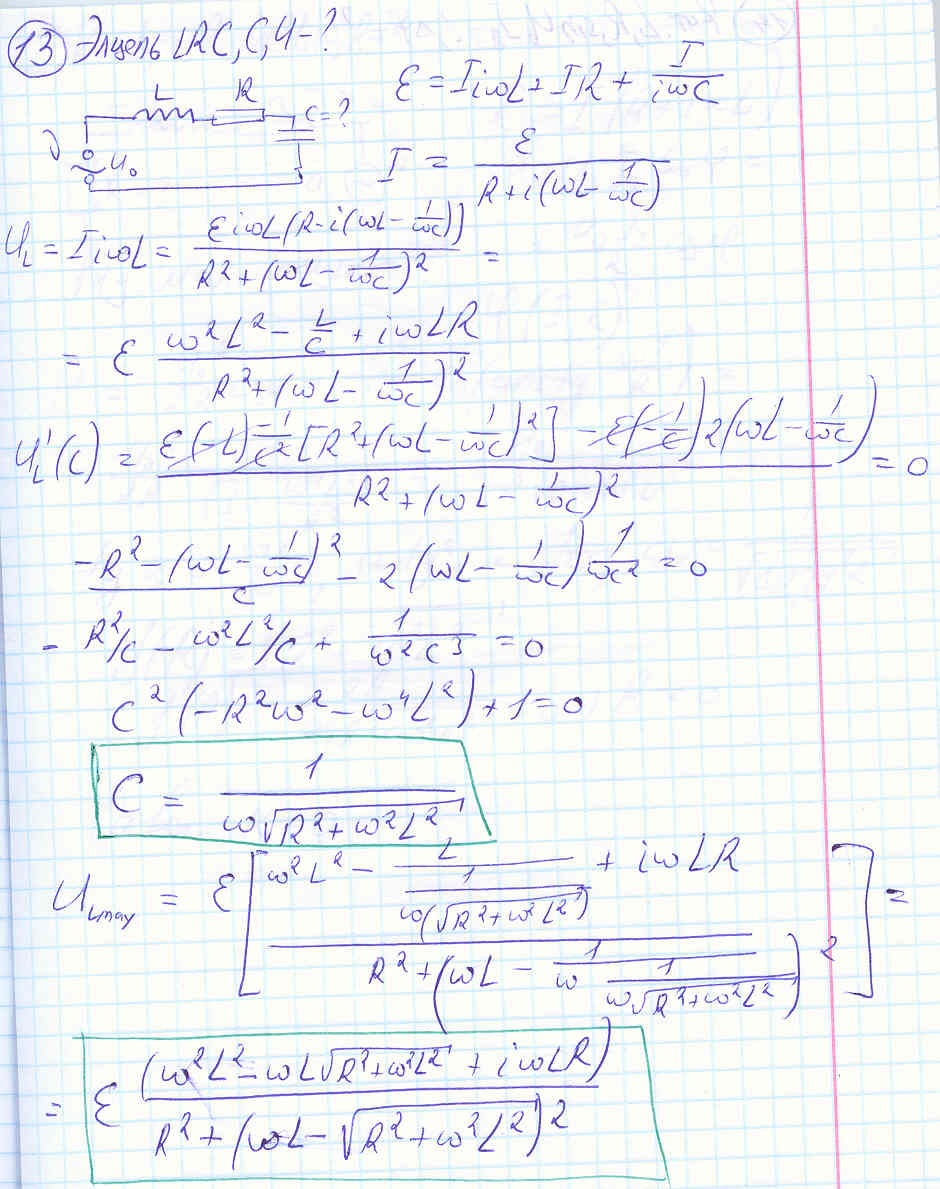 13 Эл цепь LRC, C, U - ?
L R C = ?
ν U₀
ε = IiωL + IR + I/(iωC)
I = ε/(R + i(ωL - 1/(ωC)))
U_L = IiωL = εiωL(R - i(ωL - 1/(ωC)))/(R² + (ωL - 1/(ωC))²) =
= ε (ω²L² - L/C + iωLR)/(R² + (ωL - 1/(ωC))²)
U'_L(C) = (ε(-L)(-1/C²)[R² + (ωL - 1/(ωC))²] - ε(-1/C)2(ωL - 1/(ωC)))/(R² + (ωL - 1/(ωC))²) = 0
(-R² - (ωL - 1/(ωC))²)/C - 2(ωL - 1/(ωC)) 1/(ωC²) = 0
- R²/C - ω²L²/C + 1/(ω²C³) = 0
C²(-R²ω² - ω⁴L²) + 1 = 0
C = 1/(ω√(R² + ω²L²))
U_Lmax = ε[(ω²L² - L/(1/(ω(√(R² + ω²L²)))) + iωLR)/(R² + (ωL - 1/(ω 1/(ω√(R² + ω²L²))))²)] =
= ε (ω²L² - ωL√(R² + ω²L²) + iωLR)/(R² + (ωL - √(R² + ω²L²))²)